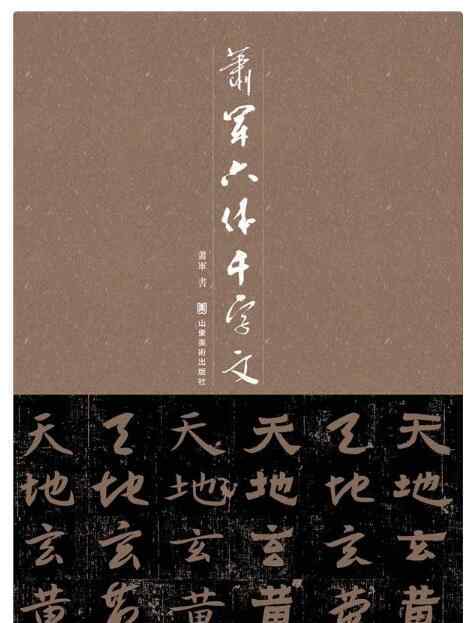 蕭軍六体千字文
蕭軍 書
山東美術出版社
天地玄黄
天地玄黄
天地玄黄
天地玄黄
天地玄黄
天地玄黄